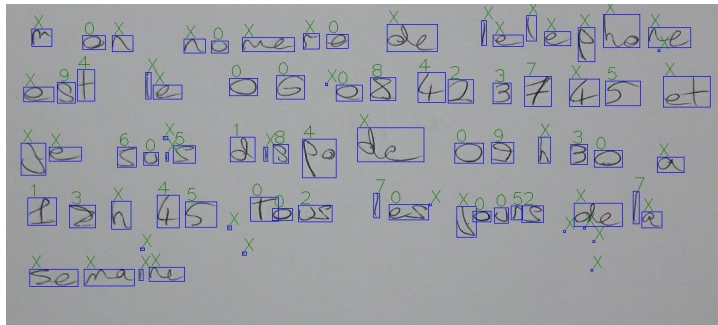 mon numero de telephone
est le 06 08 42 37 45 et
je suis dispo de 09 h 30 a
12 h 45 Tous les jours de la
semaine